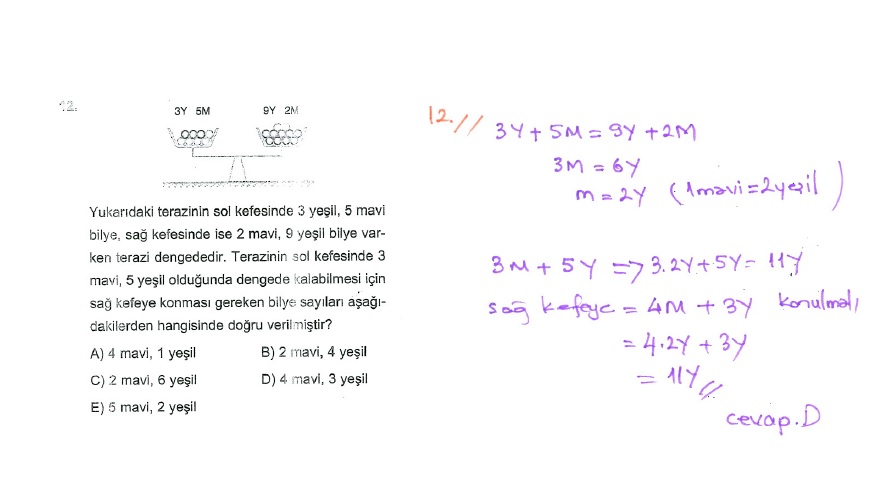 12.
3Y 5M 9Y 2M
Yukarıdaki terazinin sol kefesinde 3 yeşil, 5 mavi
bilye, sağ kefesinde ise 2 mavi, 9 yeşil bilye var-
ken terazi dengededir. Terazinin sol kefesinde 3
mavi, 5 yeşil olduğunda dengede kalabilmesi için
sağ kefeye konması gereken bilye sayıları aşağı-
dakilerden hangisinde doğru verilmiştir?
A) 4 mavi, 1 yeşil B) 2 mavi, 4 yeşil
C) 2 mavi, 6 yeşil D) 4 mavi, 3 yeşil
E) 5 mavi, 2 yeşil
12.//
3Y + 5M = 9Y + 2M
3M = 6Y
m = 2Y (1 mavi = 2 yeşil)
3M + 5Y => 3.2Y + 5Y = 11Y
sağ kefeye = 4M + 3Y konulmalı
= 4.2Y + 3Y
= 11Y //
cevap. D